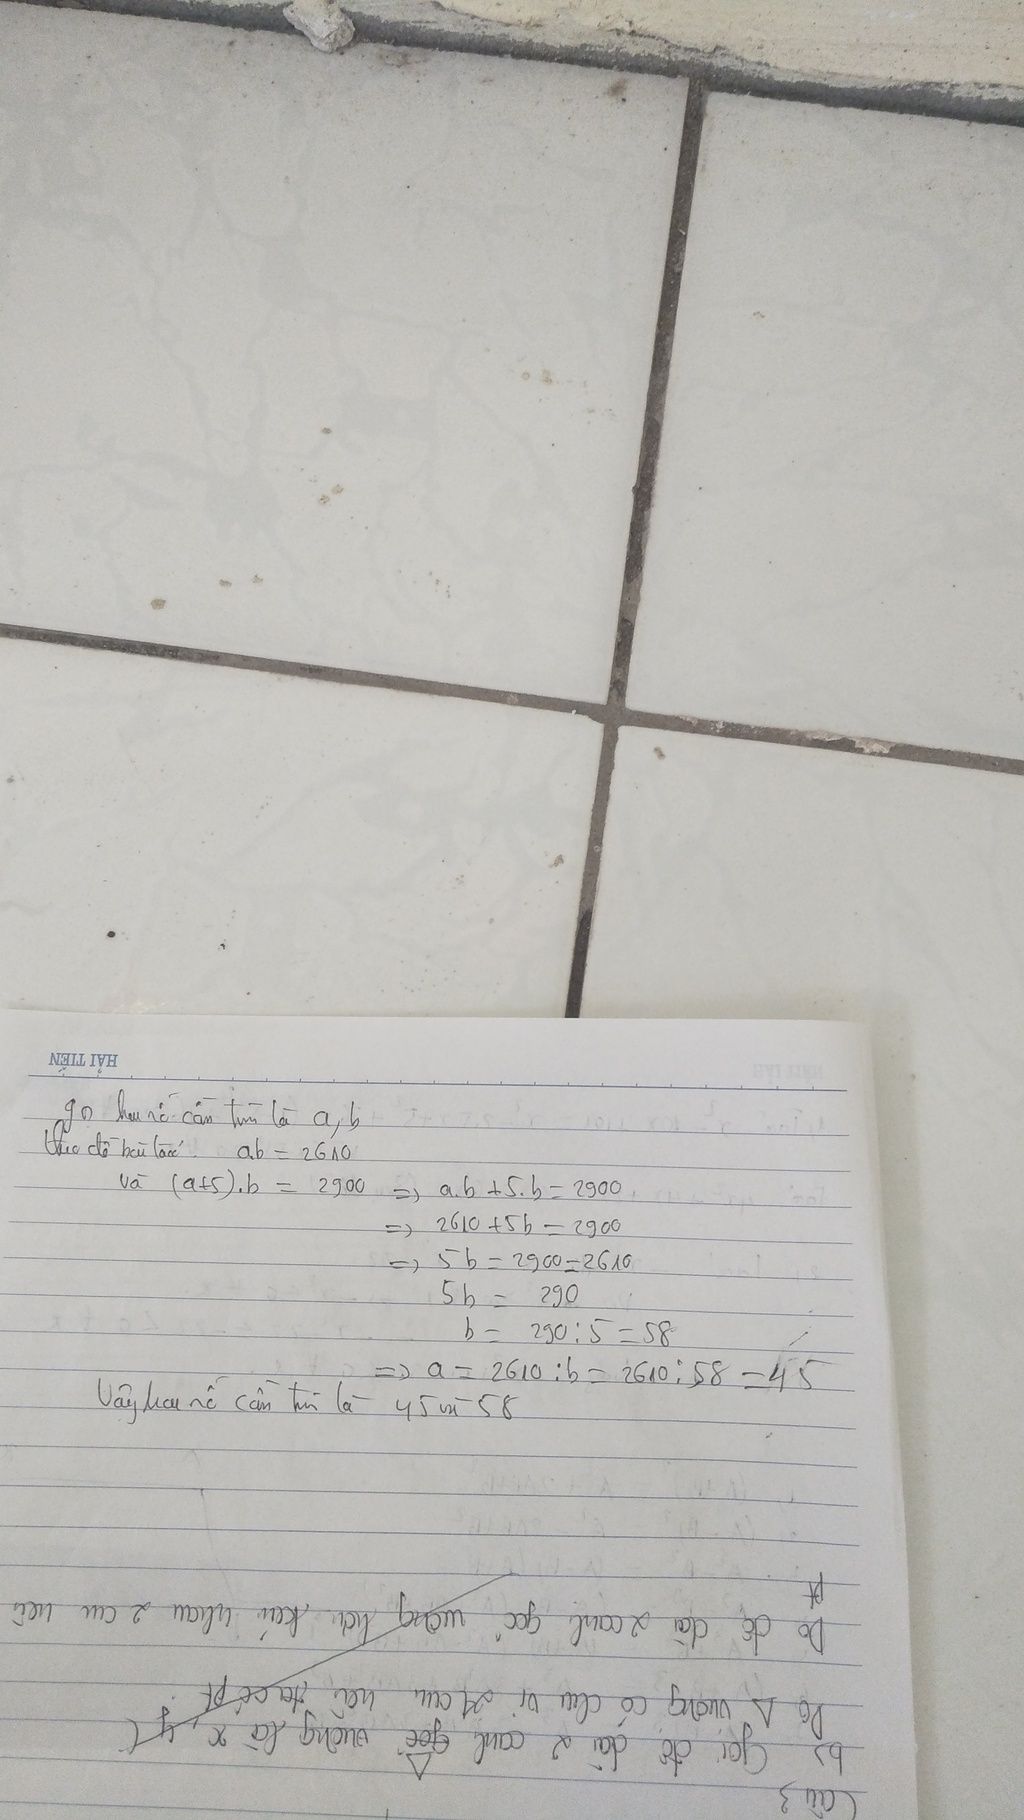 HẢI TIẾN
gọi hai số cần tìm là a, b
theo đề bài ta có: ab = 2610
và (a+5).b = 2900 => a.b + 5.b = 2900
=> 2610 + 5b = 2900
=> 5b = 2900 - 2610
5b = 290
b = 290 : 5 = 58
=> a = 2610 : b = 2610 : 58 = 45
Vậy hai số cần tìm là 45 và 58
Câu 3
b) Gọi độ dài 2 cạnh góc vuông là x, y (
Do Δ vuông có chu vi 24 cm nên ta có pt
Do độ dài 2 cạnh góc vuông hơn kém nhau 2 cm nên
pt